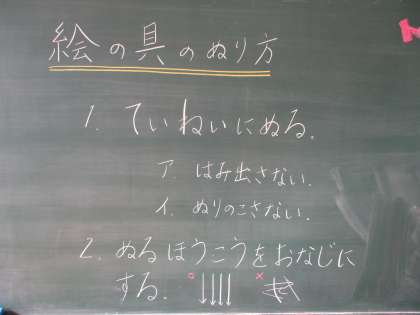 絵の具のぬり方
1. ていねいにぬる.
ア. はみ出さない.
イ. ぬりのこさない.
2. ぬるほうこうをおなじに
する. ○ ↓↓↓↓ ×